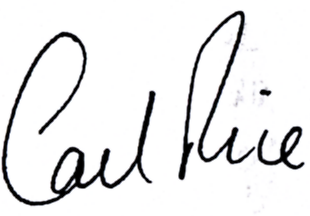 Carl Rice